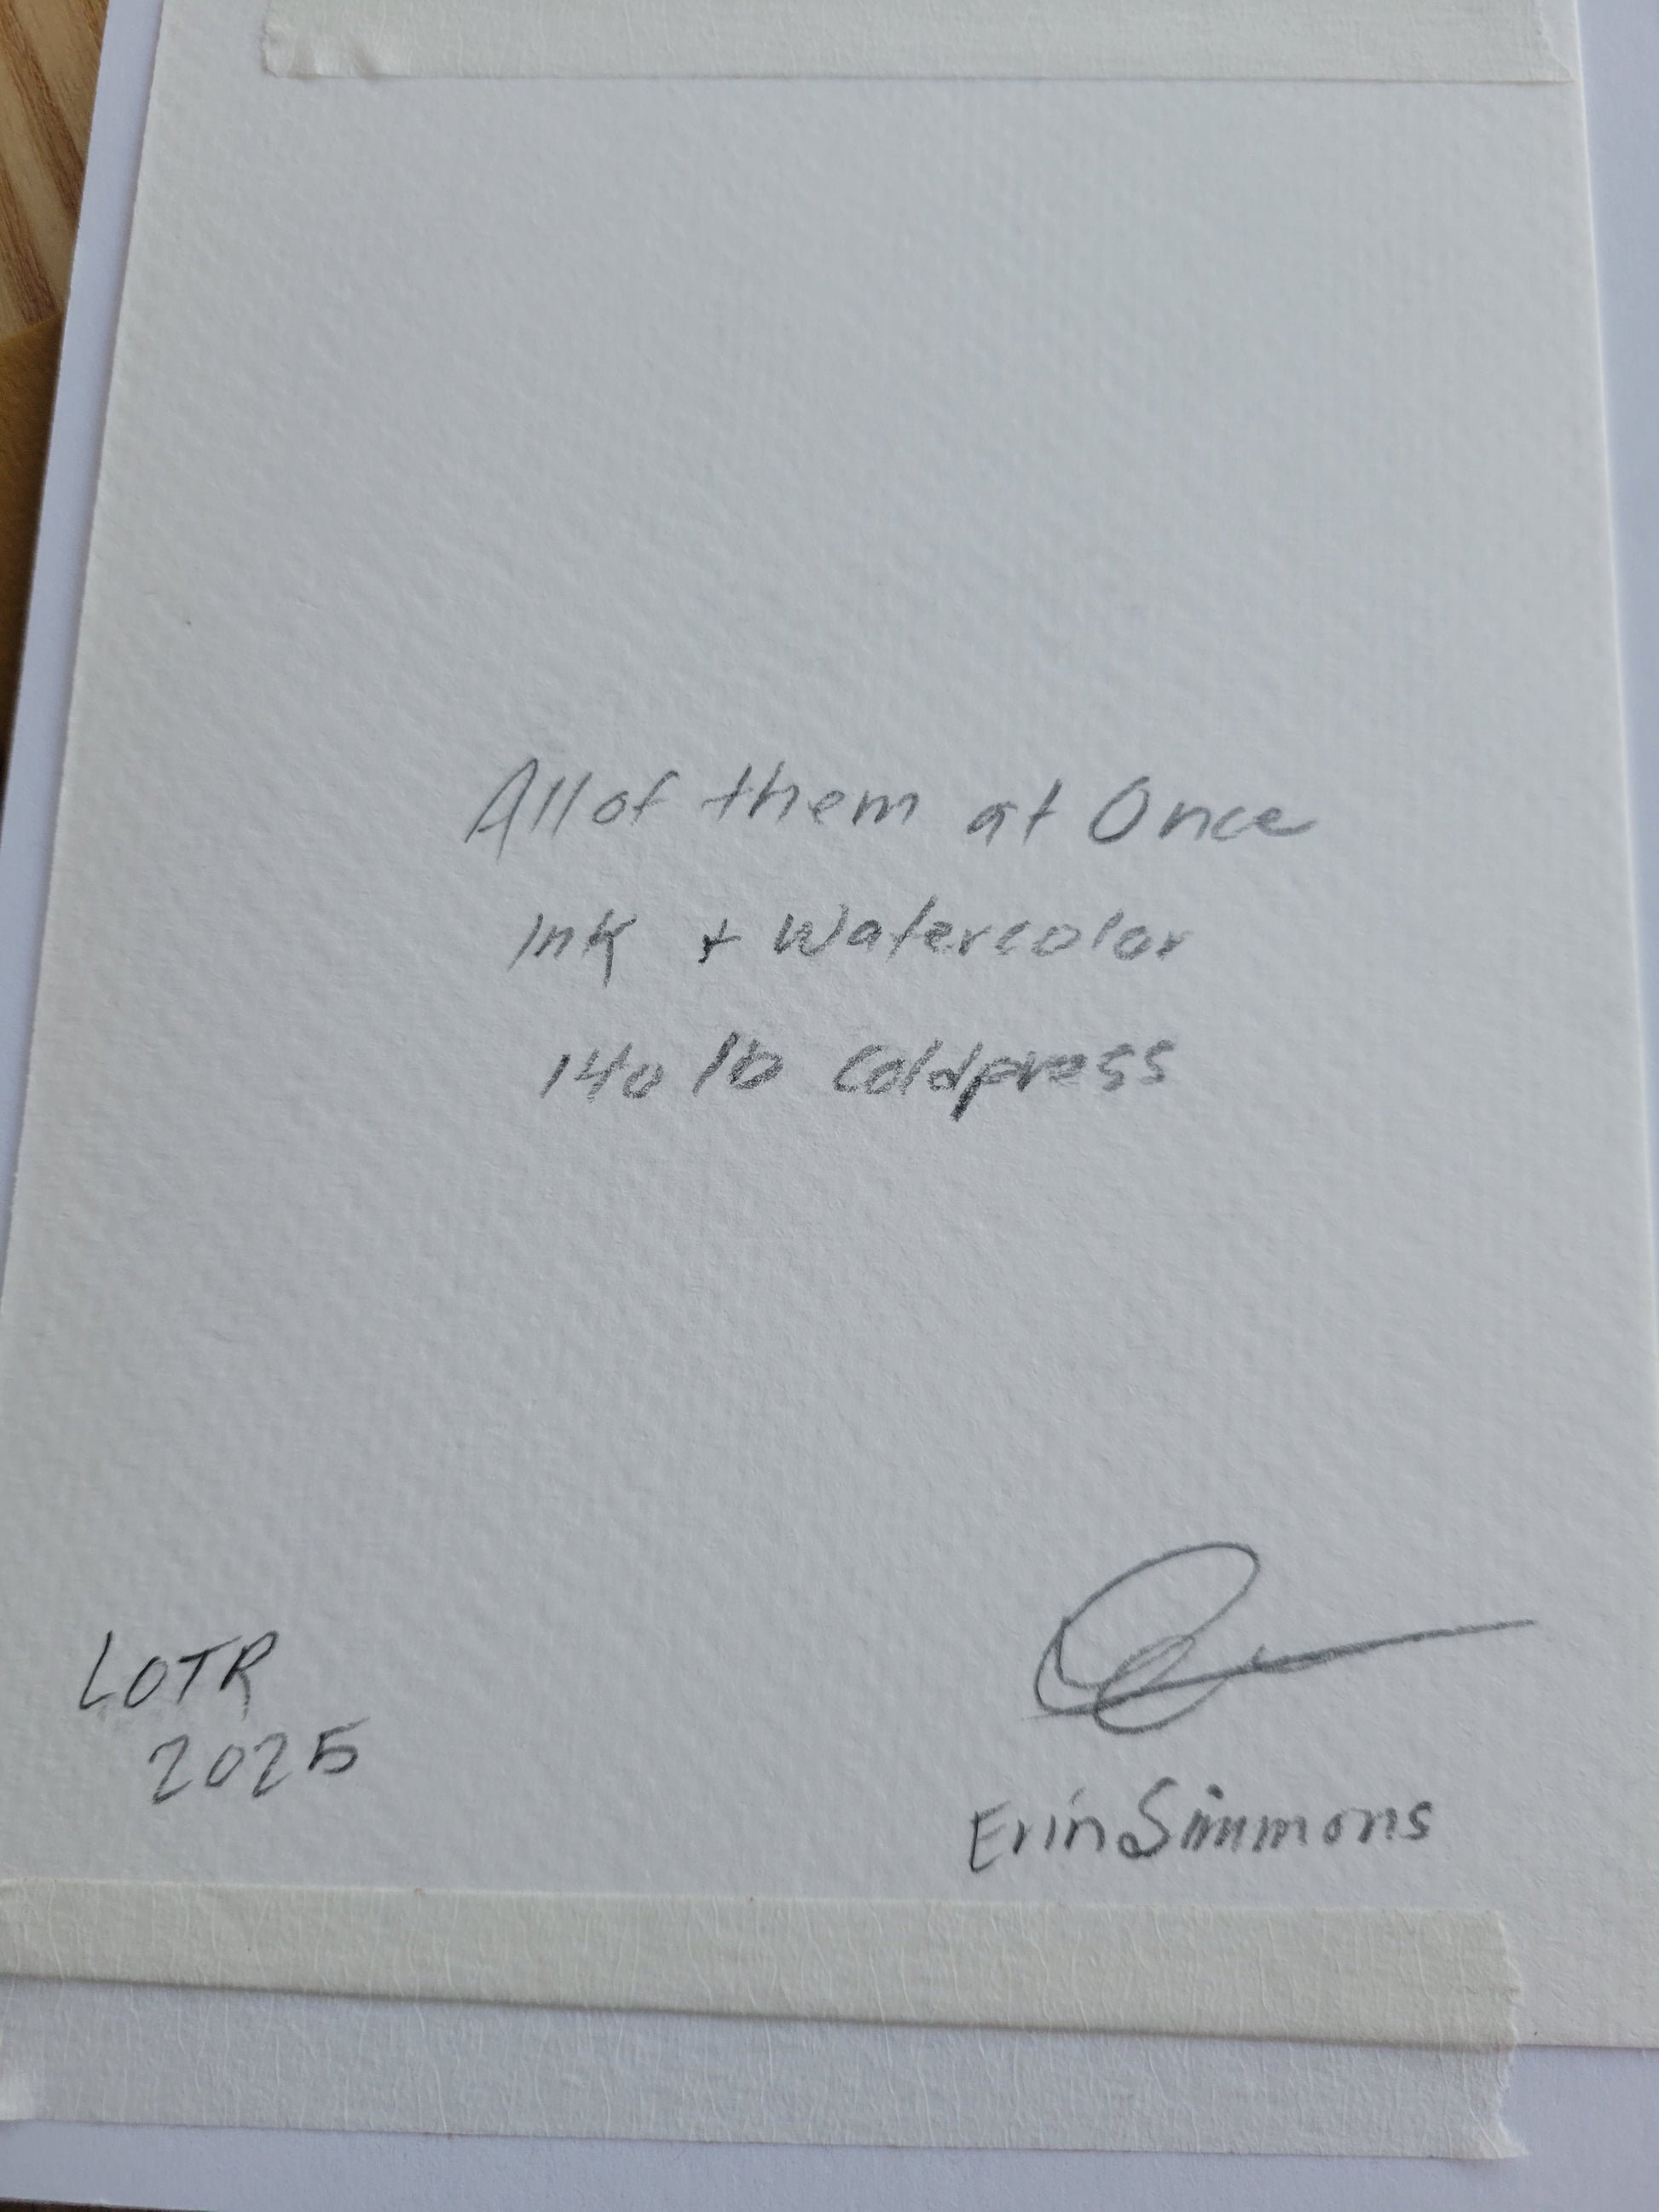 All of them at Once
Ink + Watercolor
140 lb Coldpress
LOTR
2025
Erin Simmons